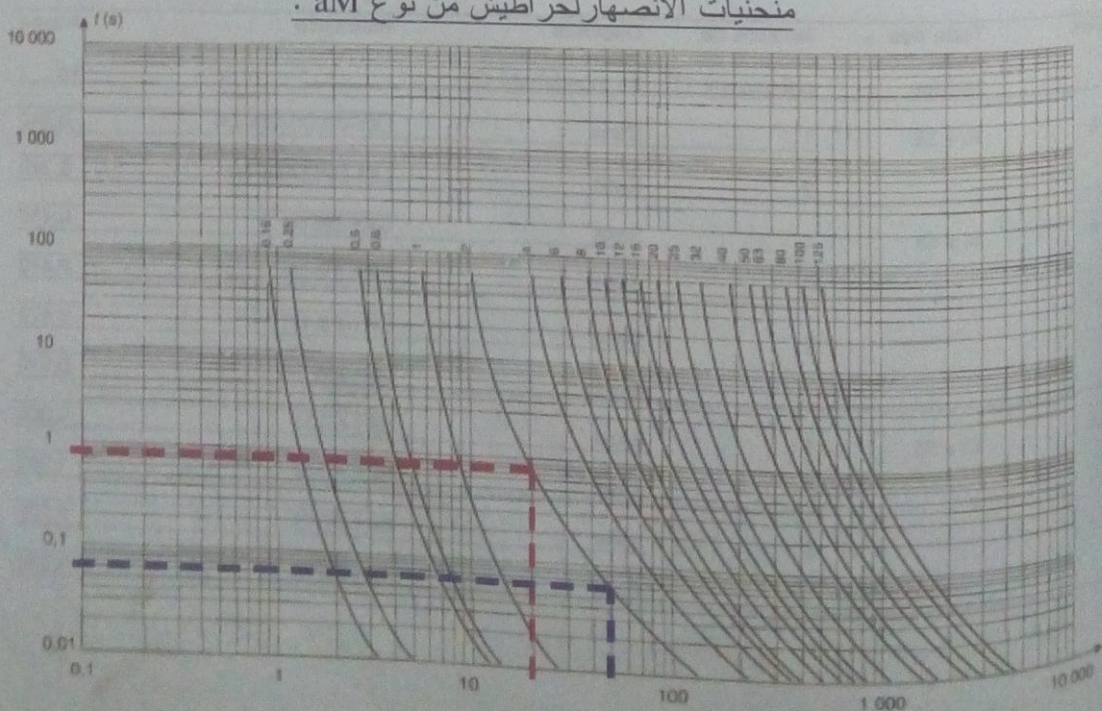 منحنيات الانصهار لخراطيش من نوع aM .
t (s)
10 000
1 000
100
10
1
0,1
0,01
0.16 0.25 0.5 1 2 4 6 8 10 12 16 20 25 32 40 50 63 80 100 125
0.1 1 10 100 1 000 10 000